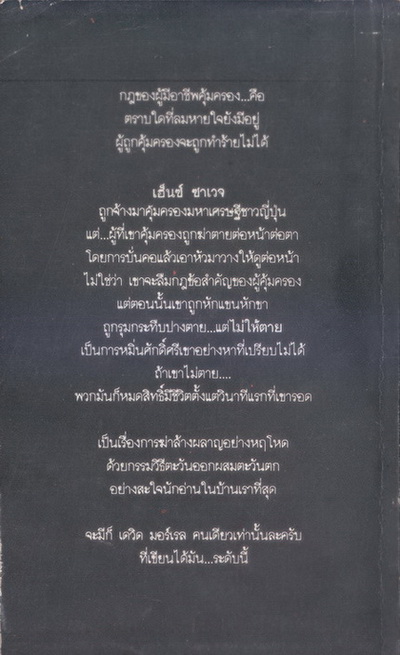 กฎของผู้มีอาชีพคุ้มครอง...คือ
ตราบใดที่ลมหายใจยังมีอยู่
ผู้ถูกคุ้มครองจะถูกทำร้ายไม่ได้
เฮ็นซ์ ซาเวจ
ถูกจ้างมาคุ้มครองมหาเศรษฐีชาวญี่ปุ่น
แต่...ผู้ที่เขาคุ้มครองถูกฆ่าตายต่อหน้าต่อตา
โดยการบั่นคอแล้วเอาหัวมาวางให้ดูต่อหน้า
ไม่ใช่ว่า เขาจะลืมกฎข้อสำคัญของผู้คุ้มครอง
แต่ตอนนั้นเขาถูกหักแขนหักขา
ถูกรุมกระทืบปางตาย...แต่ไม่ให้ตาย
เป็นการหมิ่นศักดิ์ศรีเขาอย่างหาที่เปรียบไม่ได้
ถ้าเขาไม่ตาย....
พวกมันก็หมดสิทธิ์มีชีวิตตั้งแต่วินาทีแรกที่เขารอด
เป็นเรื่องการฆ่าล้างผลาญอย่างหฤโหด
ด้วยกรรมวิธีตะวันออกผสมตะวันตก
อย่างสะใจนักอ่านในบ้านเราที่สุด
จะมีก็ เดวิด มอร์เรล คนเดียวเท่านั้นละครับ
ที่เขียนได้มัน...ระดับนี้